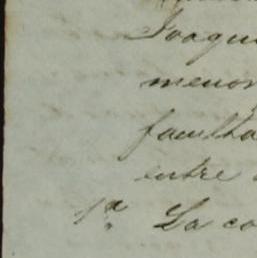 Joaqui
menor
faculta
entre
1ª La co